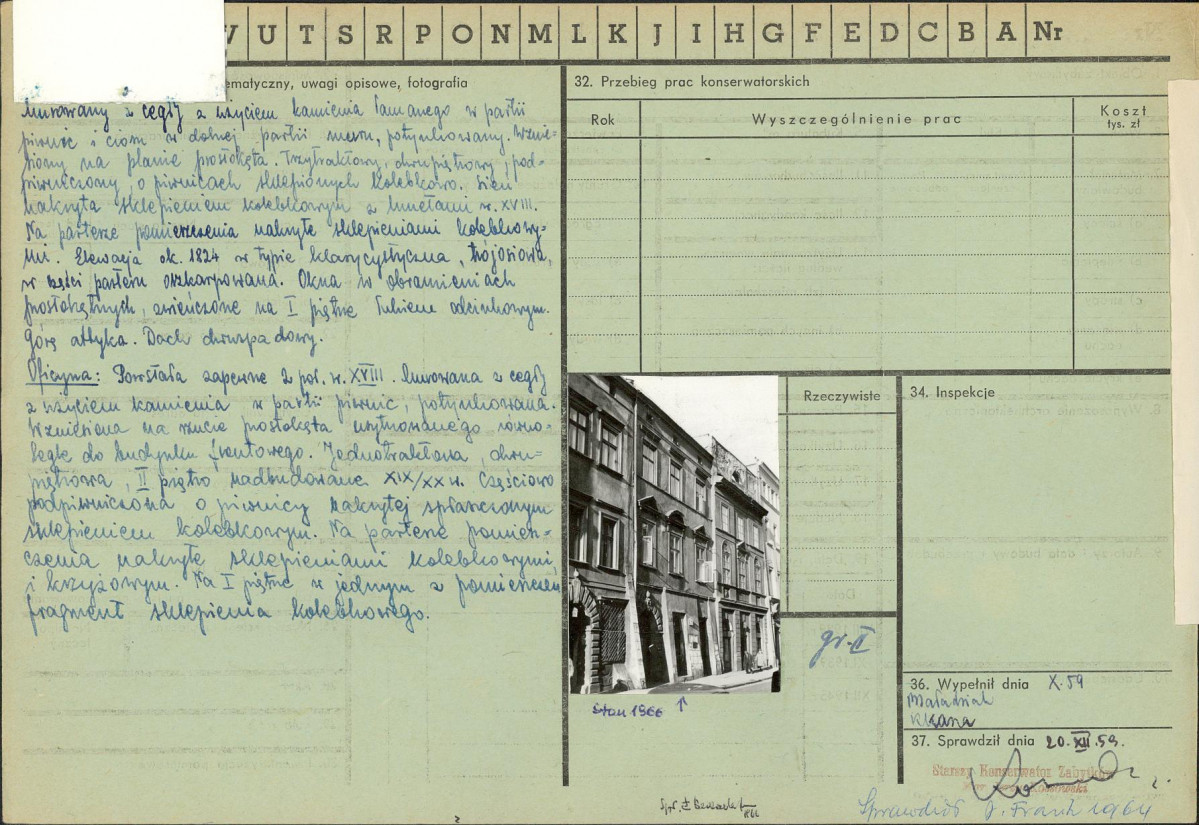 V U T S R P O N M L K J I H G F E D C B A Nr
ematyczny, uwagi opisowe, fotografia
Murowany z cegły z użyciem kamienia łamanego w partii
piwnic i ciosu w dolnej partii muru, potynkowany. Wznie-
siony na planie prostokąta. Trzytraktowy, dwupiętrowy, pod-
piwniczony, o piwnicach sklepionych kolebkowo. Sień
nakryta sklepieniem kolebkowym z lunetami w. XVIII.
Na parterze pomieszczenia nakryte sklepieniami kolebkowy-
mi. Elewacja ok. 1824 w typie klasycystyczna, trójosiowa,
w części parteru oszkarpowana. Okna w obramieniach
prostokątnych, zwieńczone na I piętrze odcinkowym.
Górą attyka. Dach dwuspadowy.
Oficyna: Powstała zapewne 2 poł. w. XVIII. Murowana z cegły
z użyciem kamienia w partii piwnic, potynkowana.
Wzniesiona na rzucie prostokąta usytuowanego równo-
legle do budynku frontowego. Jednotraktowa, dwu-
piętrowa, II piętro nadbudowane XIX/XX w. Częściowo
podpiwniczona o piwnicy nakrytej spłaszczonym
sklepieniem kolebkowym. Na parterze pomiesz-
czenia nakryte sklepieniami kolebkowymi
i krzyżowym. Na I piętrze w jednym z pomieszczeń
fragment sklepienia kolebkowego.
32. Przebieg prac konserwatorskich
Rok Wyszczególnienie prac Koszt
tys. zł
Rzeczywiste
34. Inspekcje
gr. II
Stan 1966 ↑
36. Wypełnił dnia X.59
37. Sprawdził dnia 20.XII.59.
Starszy Konserwator Zabytków
Sprawdził J. Frank 1964